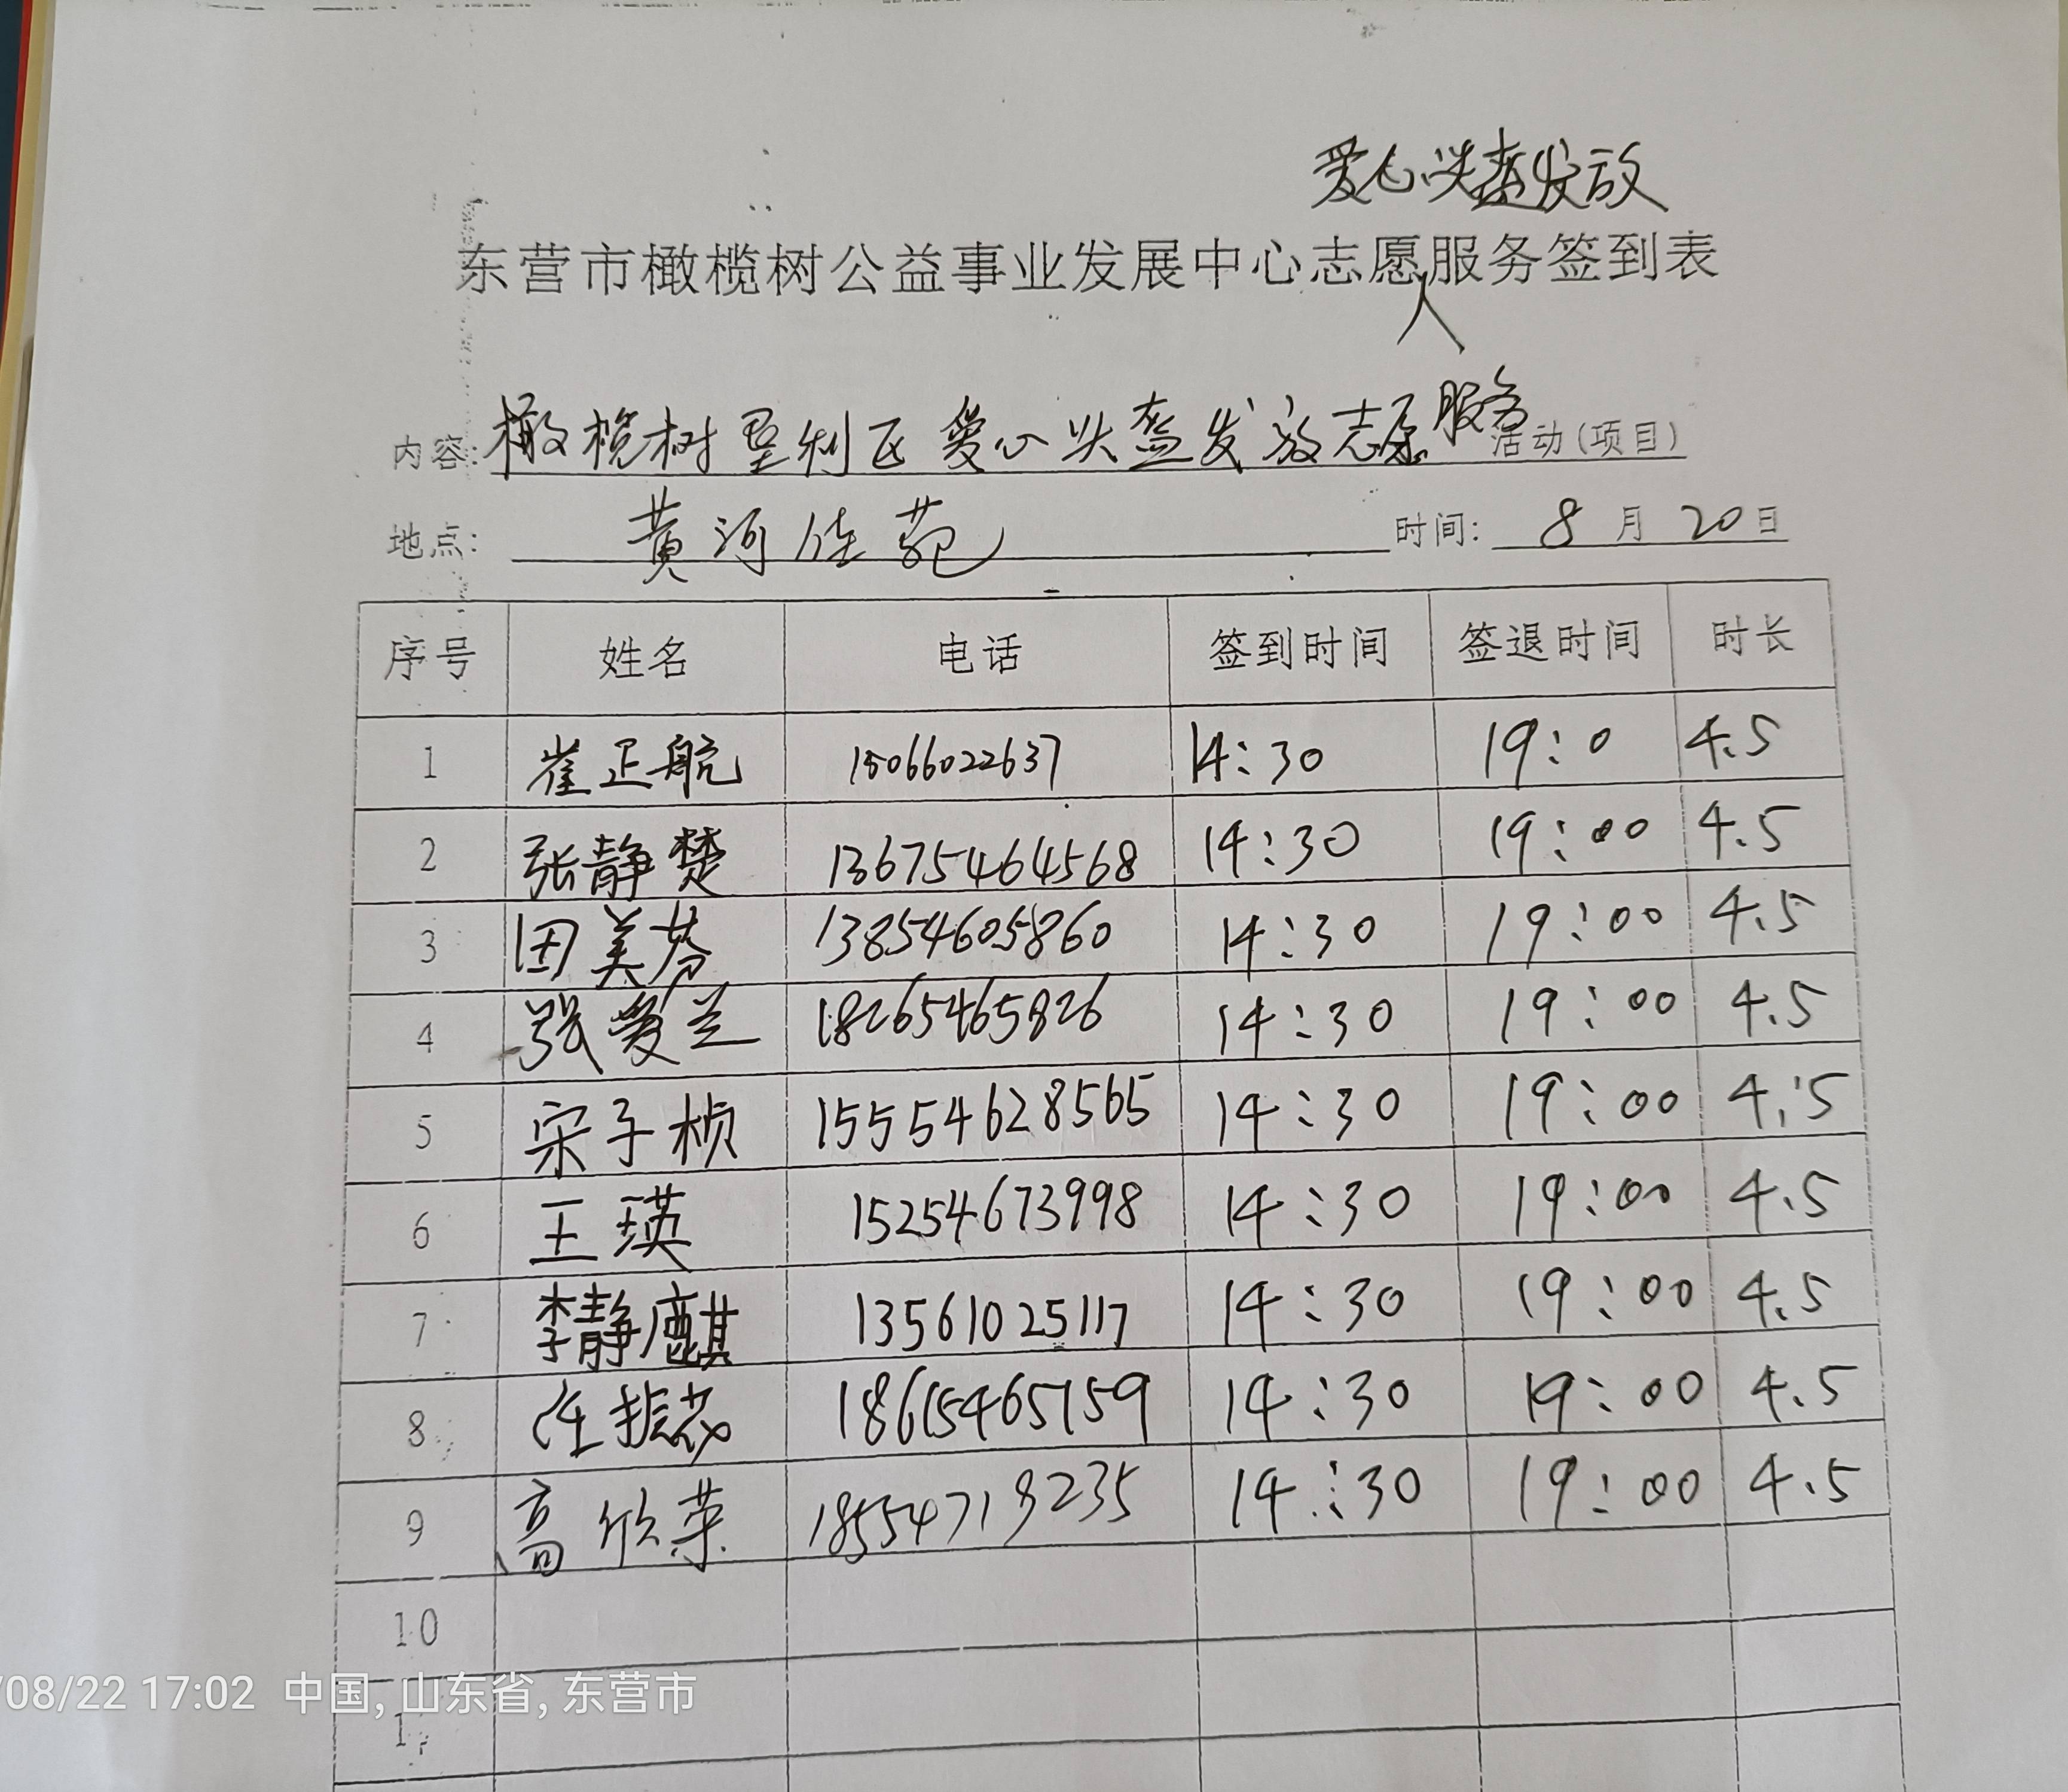 爱心头盔发放
东营市橄榄树公益事业发展中心志愿服务签到表
人
内容: 橄榄树垦利区爱心头盔发放志愿服务活动(项目)
地点: 黄河佳苑 时间: 8月20日
序号 姓名 电话 签到时间 签退时间 时长
1 崔正航 15066022637 14:30 19:0 4.5
2 张静楚 13675464568 14:30 19:00 4.5
3 田美芬 13854605860 14:30 19:00 4.5
4 张爱兰 18265465826 14:30 19:00 4.5
5 宋子桢 15554628565 14:30 19:00 4.5
6 王瑛 15254673998 14:30 19:00 4.5
7 李静麒 13561025117 14:30 19:00 4.5
8 任振 18615465159 14:30 19:00 4.5
9 高欣荣 18554719235 14:30 19:00 4.5
10
/08/22 17:02 中国, 山东省, 东营市